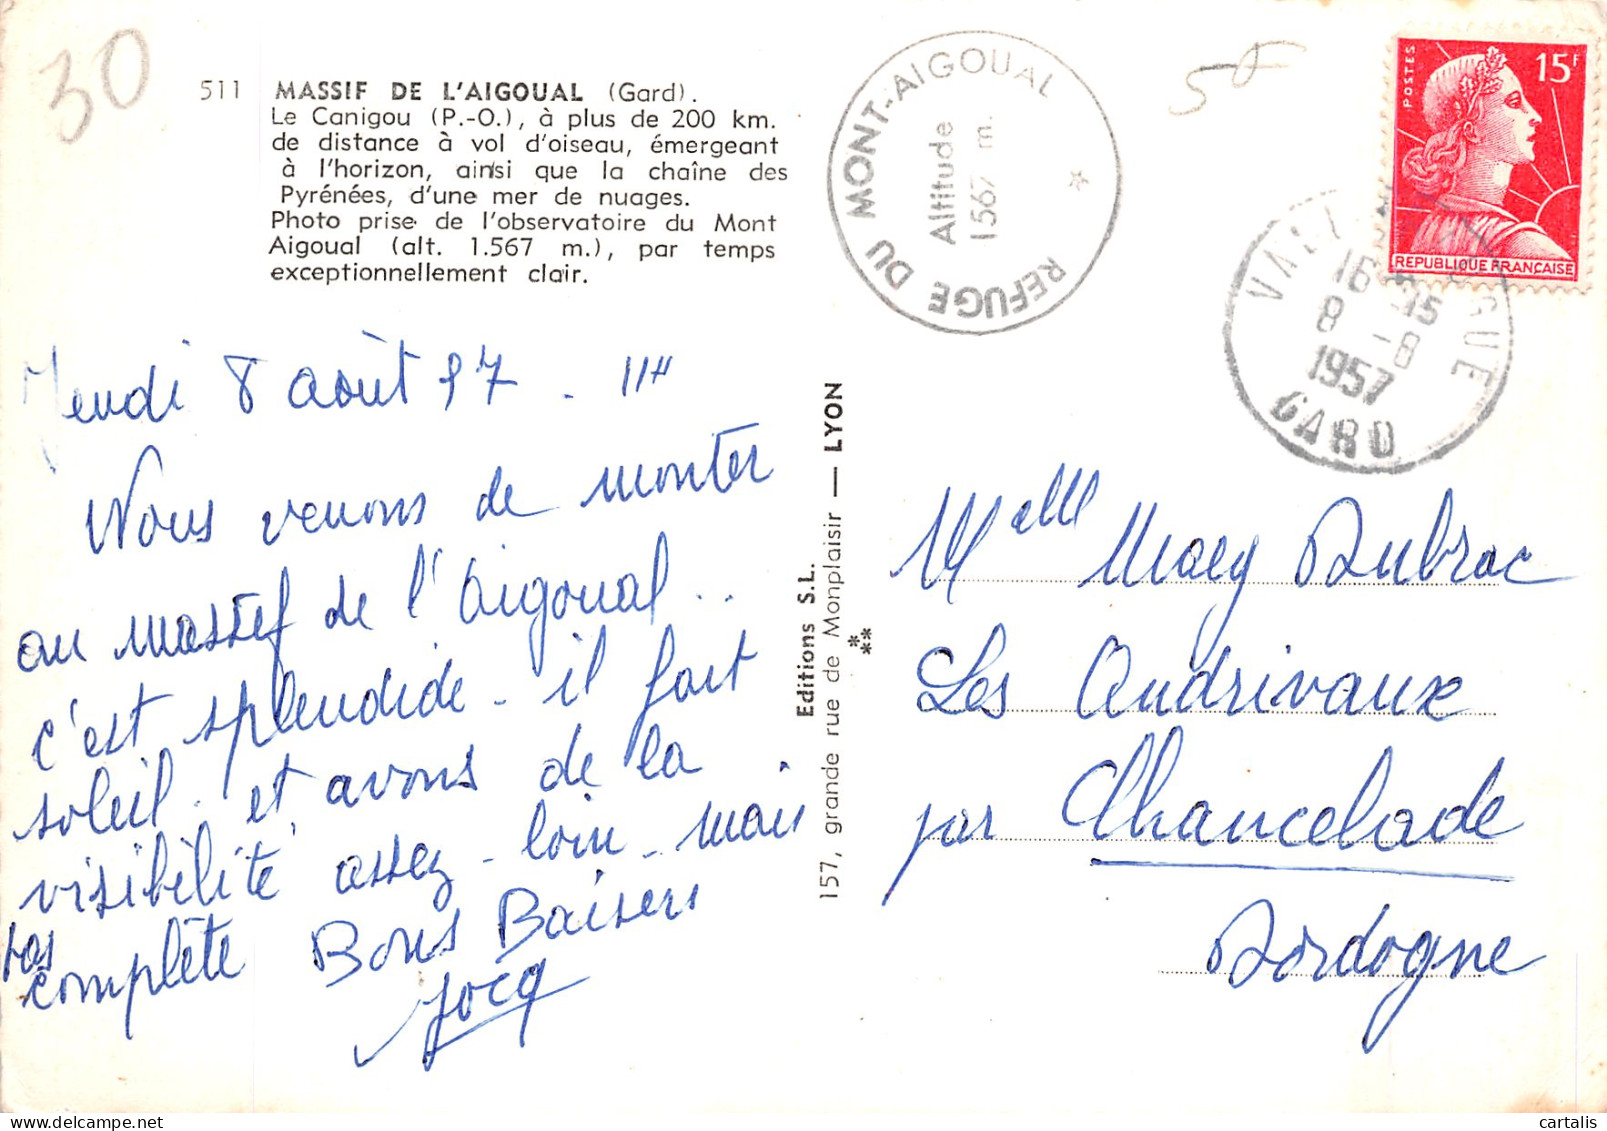 30
511 MASSIF DE L'AIGOUAL (Gard).
Le Canigou (P.-O.), à plus de 200 km.
de distance à vol d'oiseau, émergeant
à l'horizon, ainsi que la chaîne des
Pyrénées, d'une mer de nuages.
Photo prise de l'observatoire du Mont
Aigoual (alt. 1.567 m.), par temps
exceptionnellement clair.
REFUGE DU MONT-AIGOUAL
Altitude
1567 m.
POSTES
15F
REPUBLIQUE FRANÇAISE
16 15
8 -8
1957
GARD
Jeudi 8 août 57. 11H
Nous venons de monter
au massif de l'Aigoual..
c'est splendide - il fait
soleil. et avons de la
visibilité assez - loin - mais
pas
complète Bons Baisers
Jocq
Editions S.L.
157, grande rue de Monplaisir — LYON
Melle Maey Dubrac
Les Andrivaux
par Chancelade
Dordogne
© cartalis
www.delcampe.net